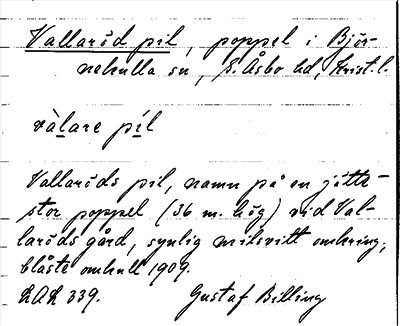 Vallaröd pil, poppel i Björ-
nekulla sn, S. Åsbo hd, Krist. l.
vàlare píl
Vallaröds pil, namn på en jätte-
stor poppel (36 m. hög) vid Val-
laröds gård, synlig milsvitt omkring;
blåste omkull 1909.
LAL 339. Gustaf Billing